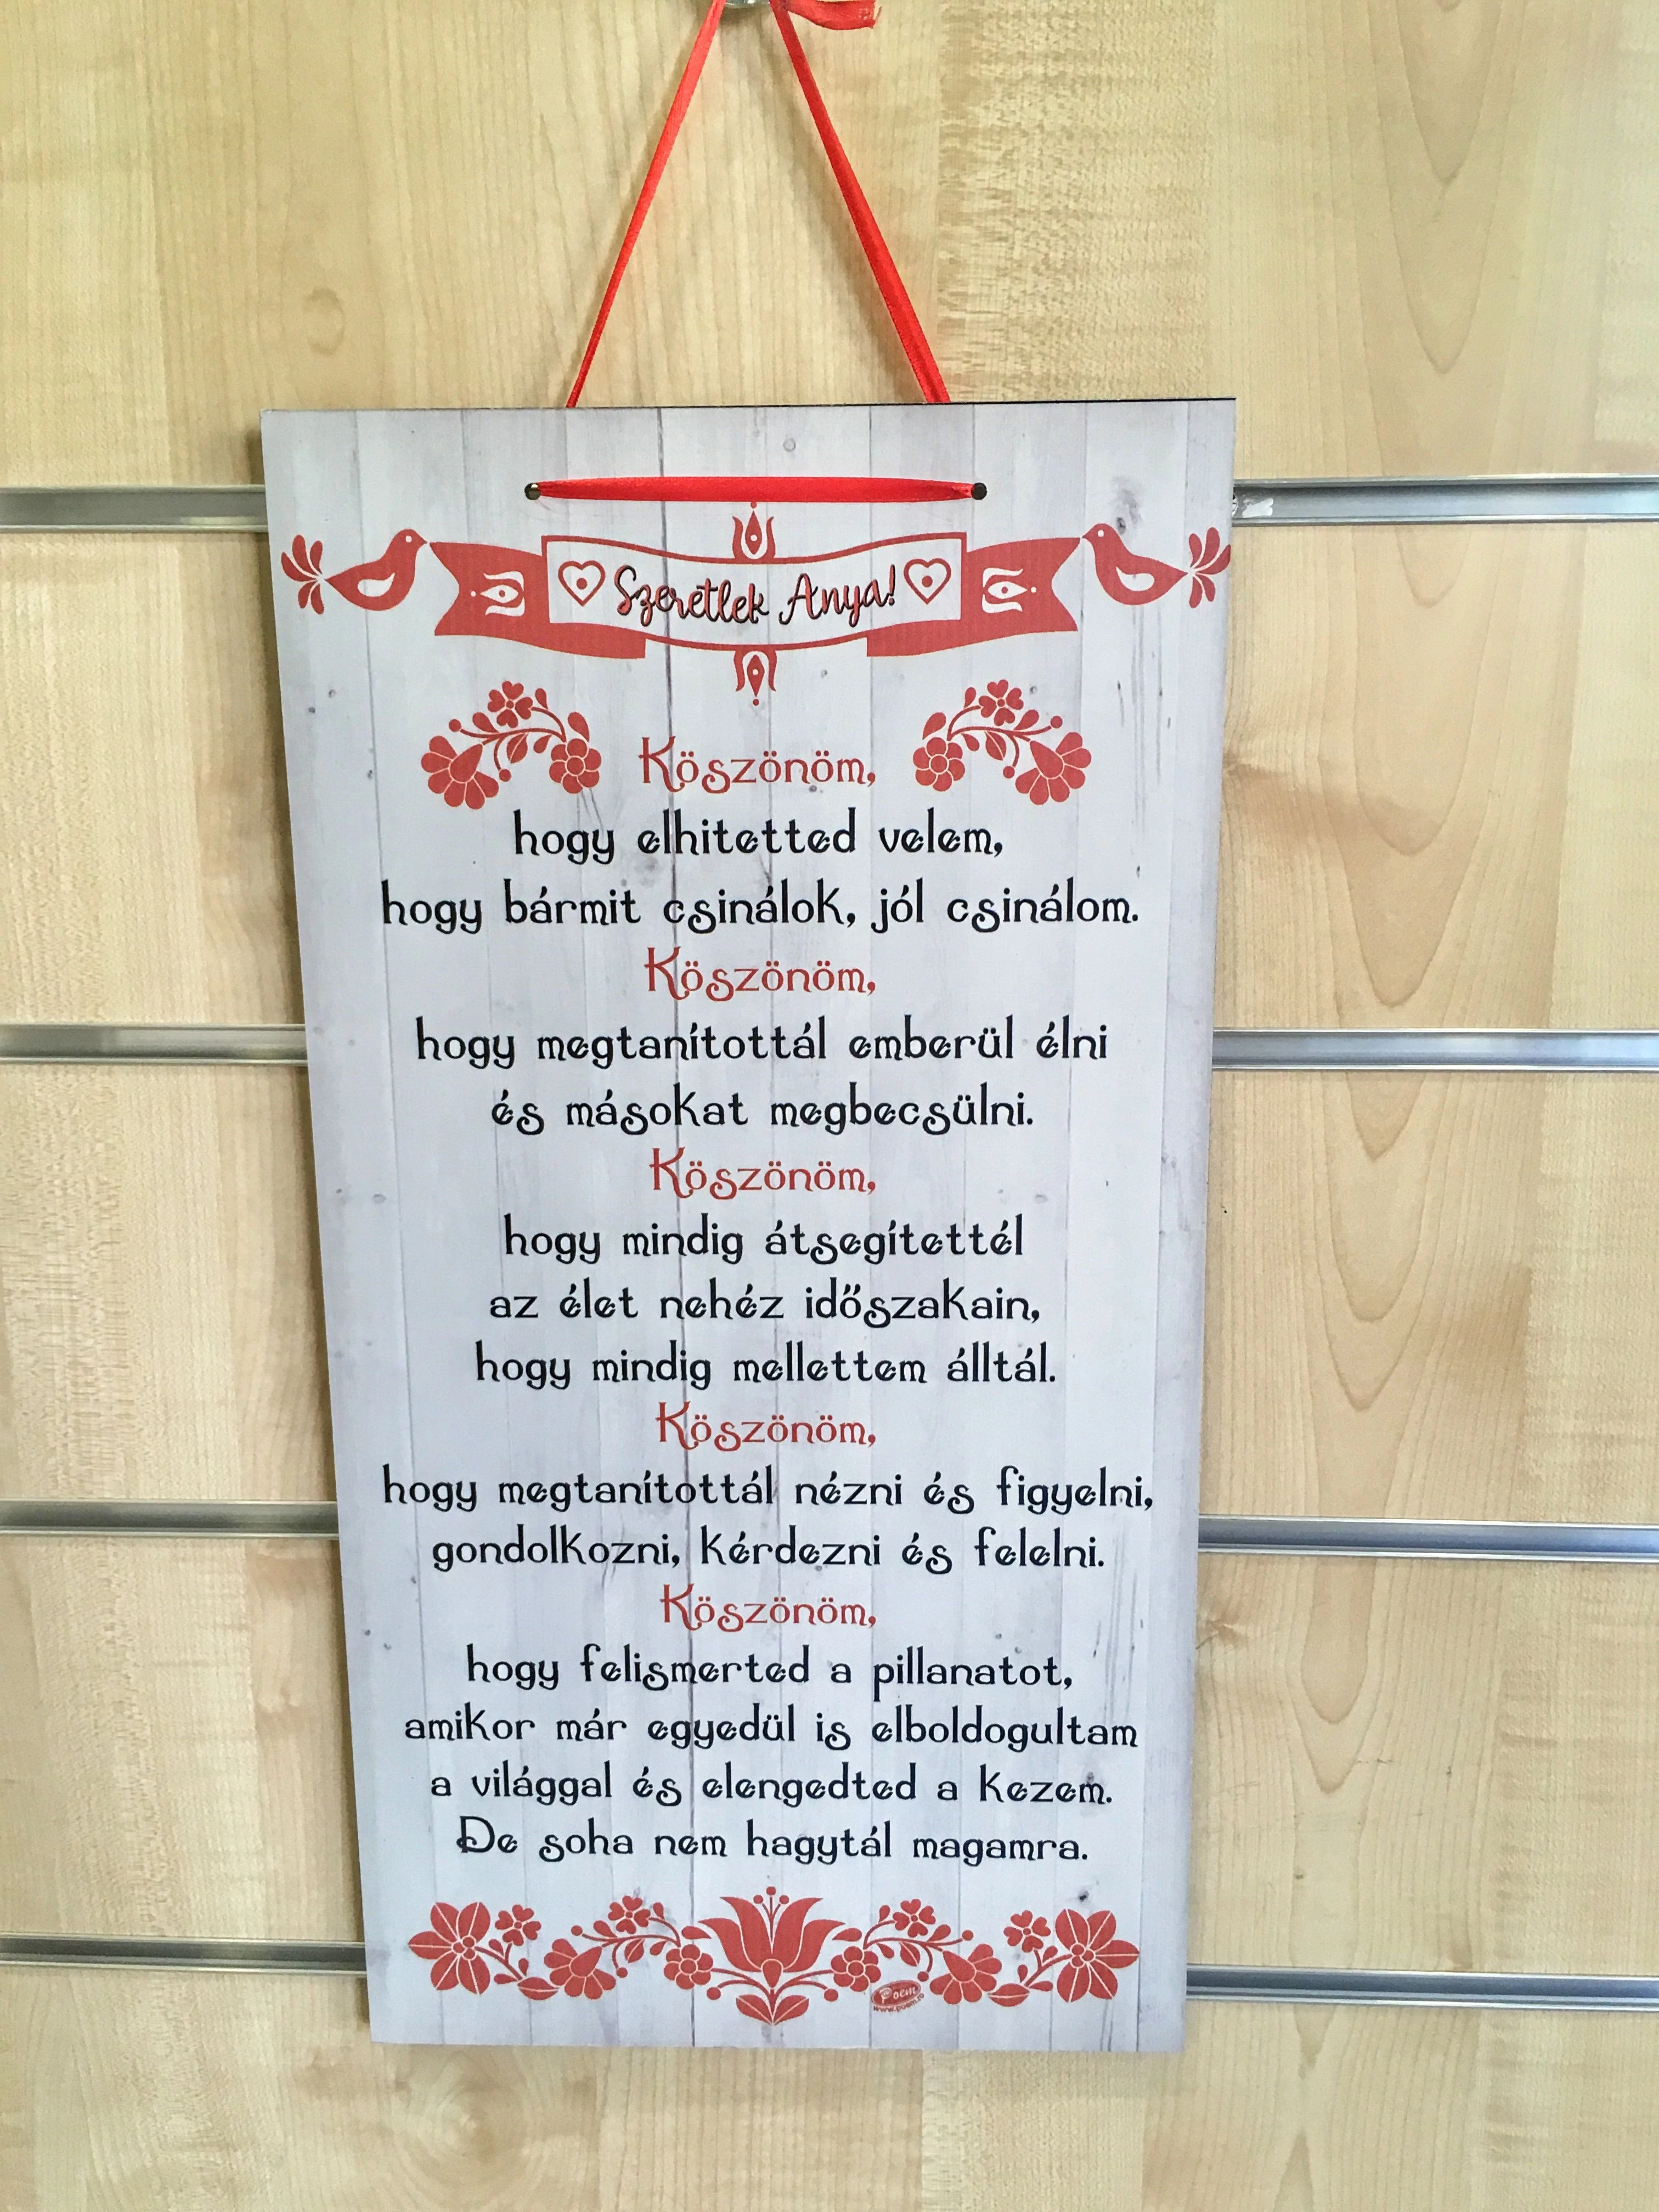 Szeretlek Anya!
Köszönöm,
hogy elhitetted velem,
hogy bármit csinálok, jól csinálom.
Köszönöm,
hogy megtanítottál emberül élni
és másokat megbecsülni.
Köszönöm,
hogy mindig átsegítettél
az élet nehéz időszakain,
hogy mindig mellettem álltál.
Köszönöm,
hogy megtanítottál nézni és figyelni,
gondolkozni, kérdezni és felelni.
Köszönöm,
hogy felismerted a pillanatot,
amikor már egyedül is elboldogultam
a világgal és elengedted a kezem.
De soha nem hagytál magamra.
Poem